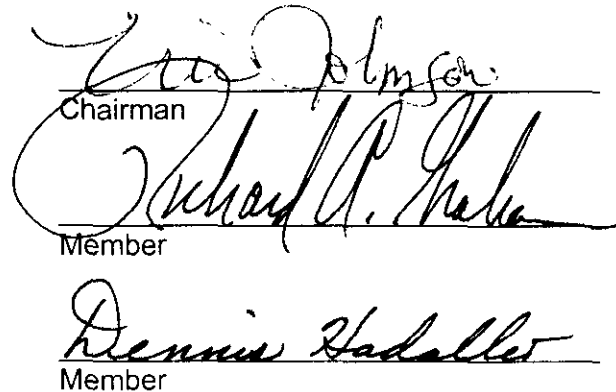 Eric Johnson
Chairman
Richard A. Graham
Member
Dennis Hadaller
Member